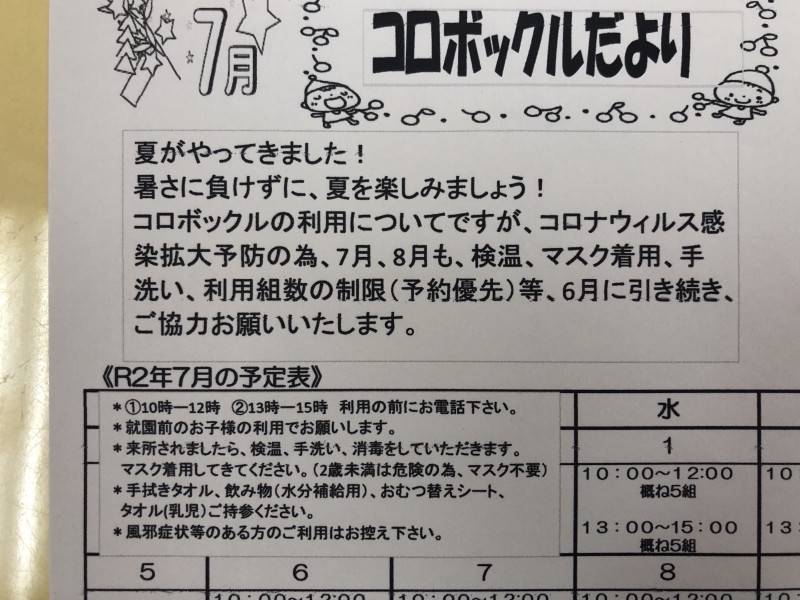 7月
コロボックルだより
夏がやってきました！
暑さに負けずに、夏を楽しみましょう！
コロボックルの利用についてですが、コロナウィルス感
染拡大予防の為、7月、8月も、検温、マスク着用、手
洗い、利用組数の制限（予約優先）等、6月に引き続き、
ご協力お願いいたします。
《R2年7月の予定表》
＊①10時―12時　②13時―15時　利用の前にお電話下さい。
＊就園前のお子様の利用でお願いします。
＊来所されましたら、検温、手洗い、消毒をしていただきます。
マスク着用してきてください。（2歳未満は危険の為、マスク不要）
＊手拭きタオル、飲み物（水分補給用）、おむつ替えシート、
タオル(乳児）ご持参ください。
＊風邪症状等のある方のご利用はお控え下さい。
水
1
10：00～12:00
10
概ね5組
13：00～15：00
13
概ね5組
5 6 7 8
10:00～12:00 10:00～12:00 10:00～12:00